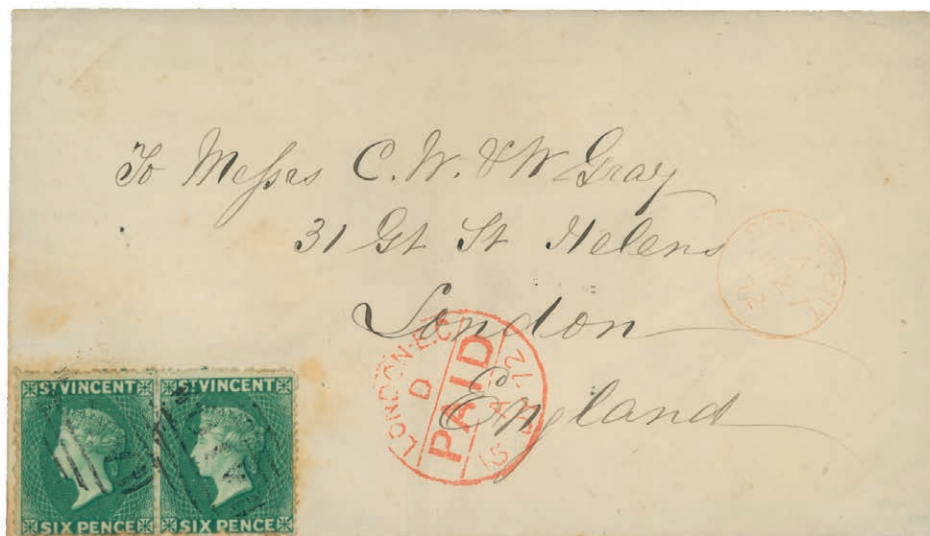 To Messrs C. W. & W Gray
31 Gt St Helens
London
England
LONDON.E.C
D
PAID
15
72
ST VINCENT
SIX PENCE
ST VINCENT
SIX PENCE